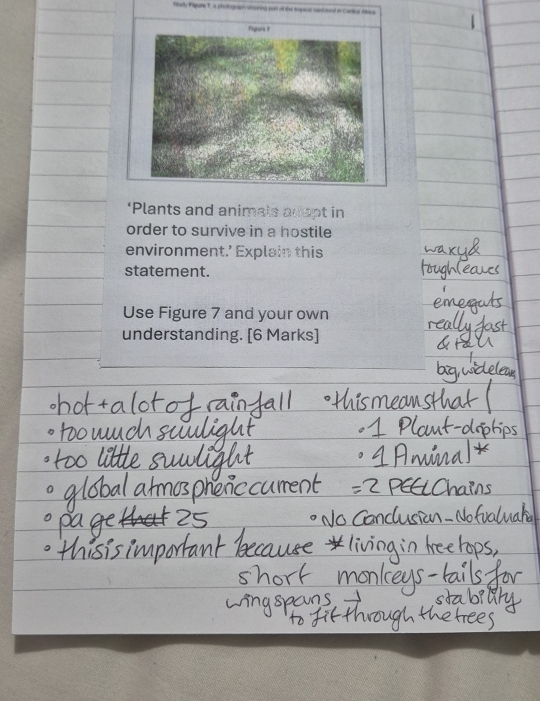 Study Figure 7, a photograph showing part of the tropical rainforest in Central Africa
Figure 7
'Plants and animals adapt in
order to survive in a hostile
environment.' Explain this
statement.
Use Figure 7 and your own
understanding. [6 Marks]
waxy &
tough leaves
really fast
& tall
big, wide leaves
•hot + a lot of rainfall
•too much sunlight
•too little sunlight
• global atmospheric current
• page that 25
• this is important because
•this means that
•1 Plant-driptips
•1 Animal*
=2 PEEL Chains
•No Conclusion-Not
* living in tree tops,
short monkeys-tails for
wingspans → stability
to fit through the trees